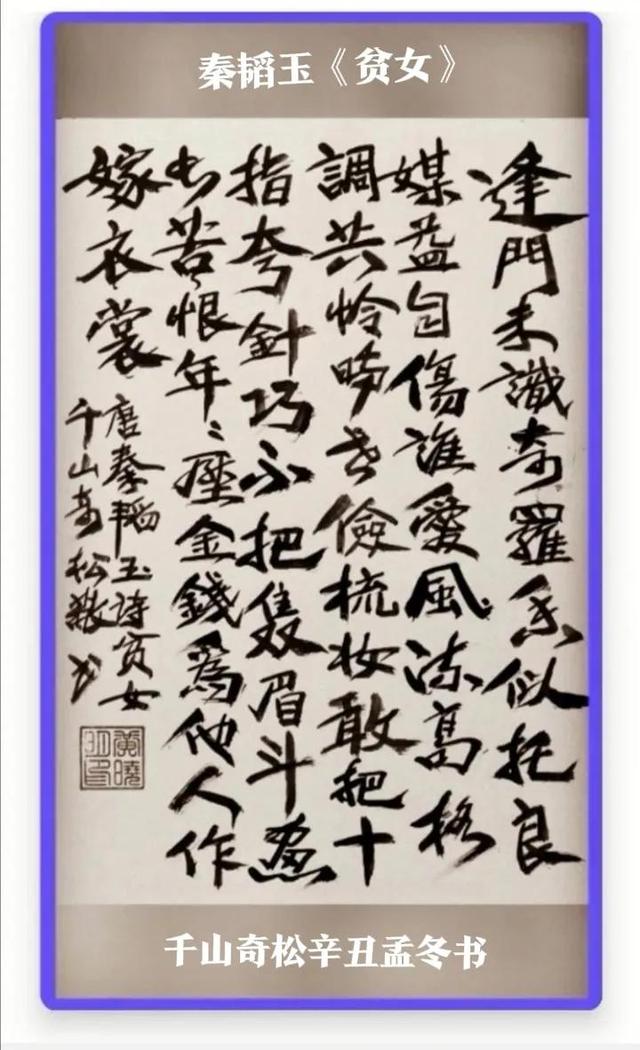 秦韬玉《贫女》
逢門未識奇羅香似托良
媒益自傷誰愛風流高格
調共怜時世儉梳妝敢把十
指夸針巧不把雙眉斗畫
苦恨年〻壓金錢為他人作
嫁衣裳
唐秦韬玉诗贫女
千山奇松书
千山奇松辛丑孟冬书